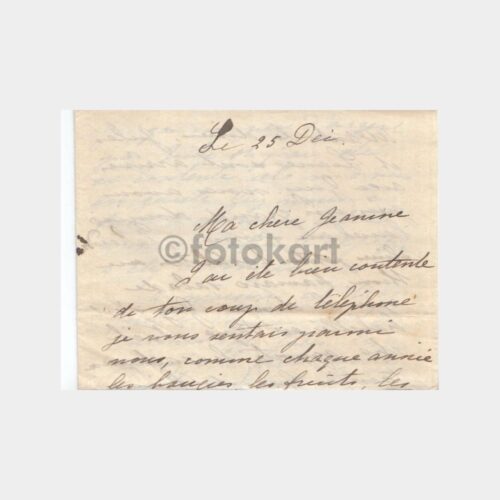 Le 25 Déc.
Ma chère Jeanine
©fotokart
J'ai été bien contente
de ton coup de téléphone
je vous sentais parmi
nous, comme chaque année
les bougies, les fruits, les